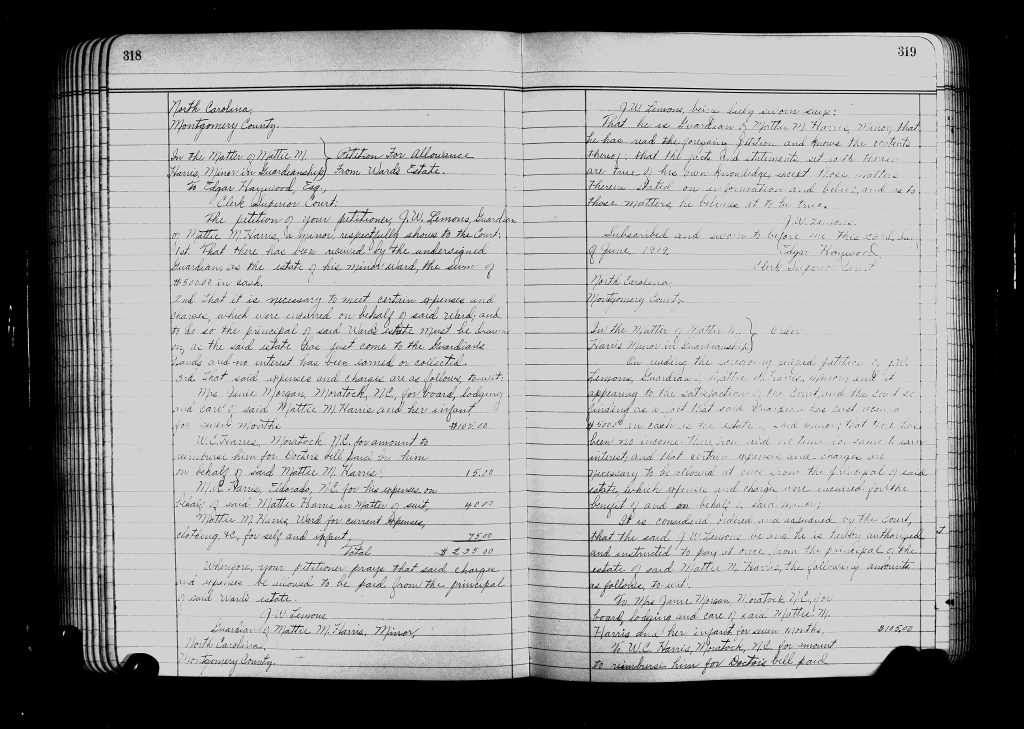 318
North Carolina,
Montgomery County.
In the Matter of Mattie M.
Harris, Minor in Guardianship } Petition For Allowance
From Wards Estate.
To Edgar Haywood, Esq.,
Clerk Superior Court.
The petition of your petitioner, J.W. Lemons, Guardian
of Mattie M. Harris, a minor, respectfully shows to the Court:
1st. That there has been received by the undersigned
Guardian as the estate of his minor ward, the sum of
$500.00 in cash.
2nd That it is necessary to meet certain expenses and
charges, which were incurred on behalf of said Ward; and
to do so the principal of said Wards estate must be drawn
on, as the said estate has just come to the Guardians
hands and no interest has been earned or collected.
3rd. That said expenses and charges are as follows, to-wit:
Mrs. Janie Morgan, Moratock, N.C., for board, lodging
and care of said Mattie M. Harris and her infant
for seven months $105.00
W.C. Harris, Moratock N.C. for amount to
reimburse him for Doctors bill paid by him
on behalf of said Mattie M. Harris. 15.00
M.C. Harris, Eldorado, N.C. for his expenses on
behalf of said Mattie Harris in Matter of suit, 40.00
Mattie M. Harris Ward for current expenses,
clothing &C., for self and infant, 75.00
Total $235.00
Wherefore, your petitioner prays that said charges
and expenses be allowed to be paid from the principal
of said Wards estate.
J.W. Lemons
Guardian of Mattie M. Harris, Minor,
North Carolina,
Montgomery County.
319
J.W. Lemons, being duly sworn says:
That he is Guardian of Mattie M. Harris, Minor, that
he has read the foregoing petition and knows the contents
thereof; that the facts and statements set forth therein
are true of his own knowledge, except those matters
therein stated on information and belief, and as to
those matters, he believes it to be true.
J.W. Lemons
Subscribed and sworn to before me this
of June, 1919. Edgar Haywood,
Clerk Superior Court
North Carolina,
Montgomery County.
In the Matter of Mattie M. } Order
Harris Minor in Guardianship.
On reading the foregoing verified petition of J.W.
Lemons, Guardian of Mattie M. Harris, minor, and it
appearing to the satisfaction of the Court, and the Court so
finding as a fact that said Guardian has just received
$500.00 in cash as the estate of said minor; that there has
been no income therefrom and no time for same to earn
interest, and that certain expenses and charges are
necessary to be allowed at once from the principal of said
estate which expense and charge were incurred for the
benefit of and on behalf of said minor;
It is considered, ordered and adjudged by the Court,
that the said J.W. Lemons be and he is hereby authorized
and instructed to pay at once from the principal of the
estate of said Mattie M. Harris, the following amounts
as follows, to wit:
To Mrs Janie Morgan Moratock N.C., for
board, lodging and care of said Mattie M.
Harris and her infant for seven months. $105.00
To W.C. Harris, Moratock, N.C. for amount
to reimburse him for Doctors bill paid